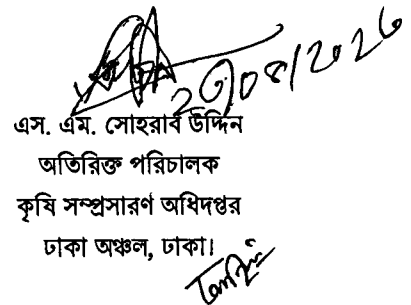 ২৩/০৪/২০২৬
এস. এম. সোহরাব উদ্দিন
অতিরিক্ত পরিচালক
কৃষি সম্প্রসারণ অধিদপ্তর
ঢাকা অঞ্চল, ঢাকা।